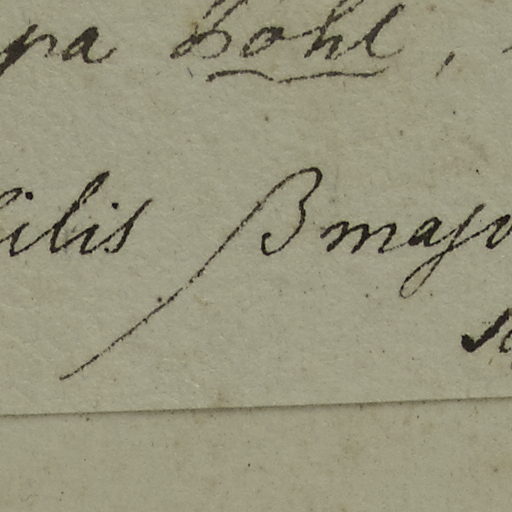 pa Pohl,
ilis β majo